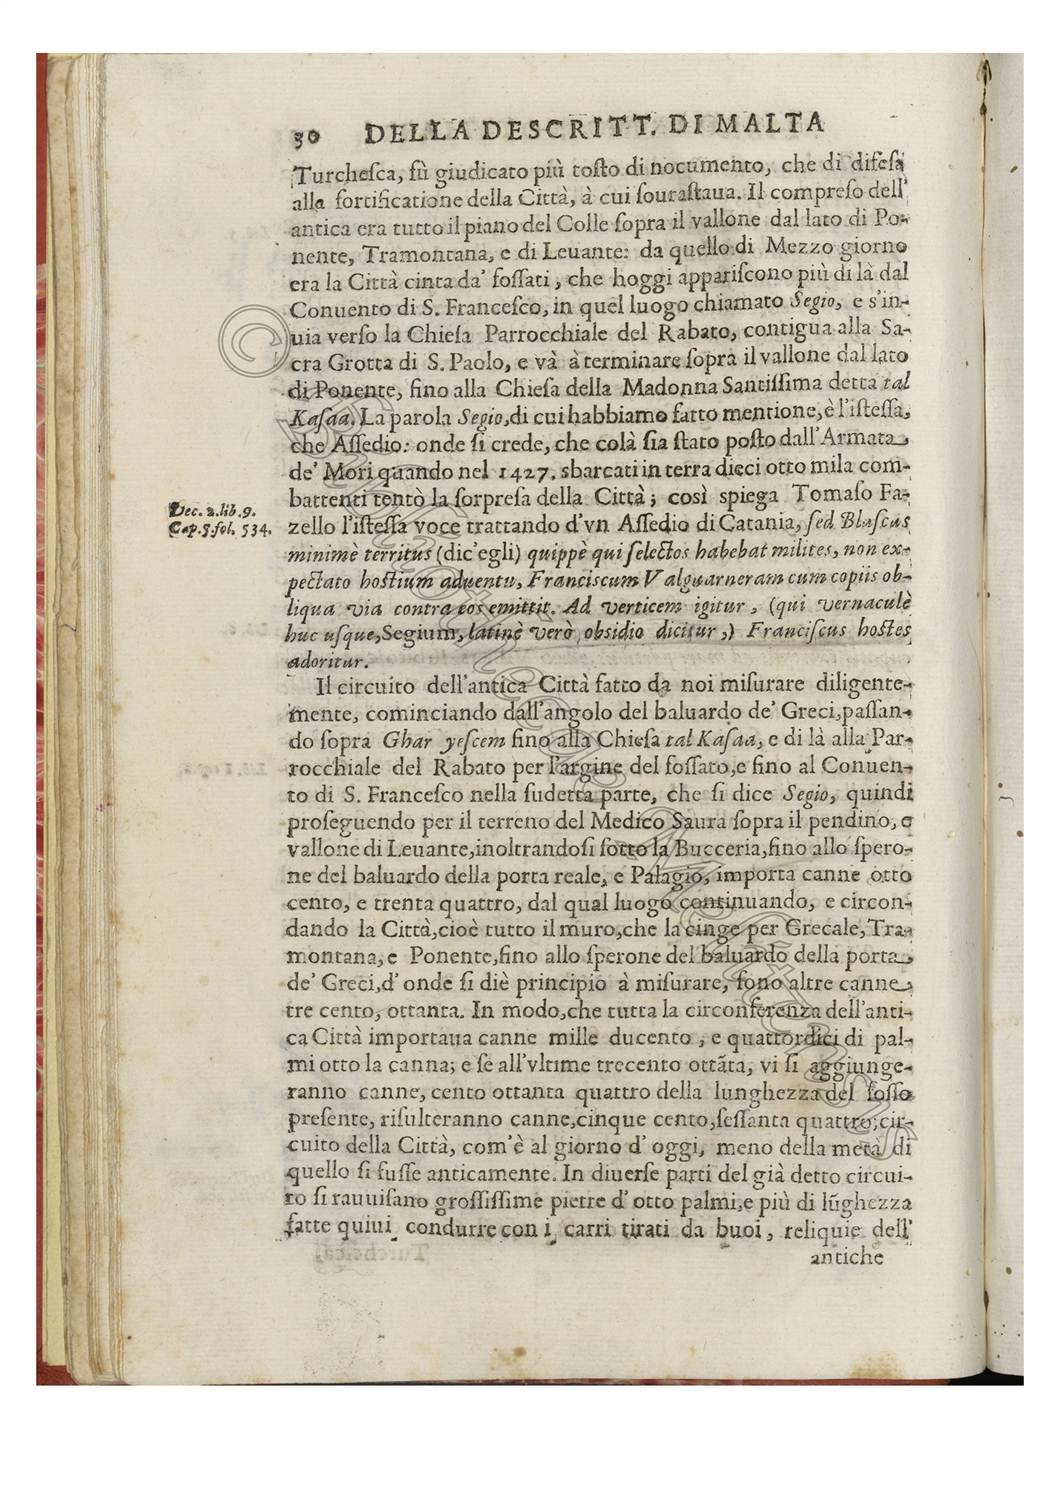 30 DELLA DESCRITT. DI MALTA
Turchesca, fù giudicato più tosto di nocumento, che di difesa
alla fortificatione della Città, à cui sourastaua. Il compreso dell'
antica era tutto il piano del Colle sopra il vallone dal lato di Po-
nente, Tramontana, e di Leuante: da quello di Mezzo giorno
era la Città cinta da' fossati, che hoggi appariscono più di là dal
Conuento di S. Francesco, in quel luogo chiamato Segio, e s'in-
uia verso la Chiesa Parrocchiale del Rabato, contigua alla Sa-
cra Grotta di S. Paolo, e và à terminare sopra il vallone dal lato
di Ponente, fino alla Chiesa della Madonna Santissima detta tal
Kasaa. La parola Segio, di cui habbiamo fatto mentione, è l'istessa,
che Assedio: onde si crede, che colà sia stato posto dall'Armata
de' Mori quando nel 1427. sbarcati in terra dieci otto mila com-
battenti tentò la sorpresa della Città; così spiega Tomaso Fa-
Dec. 2. lib. 9.
Cap. 5. fol. 534.
zello l'istessa voce trattando d'vn Assedio di Catania, sed Blascus
minimè territus (dic'egli) quippè qui selectos habebat milites, non ex-
pectato hostium aduentu, Franciscum Valguarneram cum copiis ob-
liqua via contra eos emittit. Ad verticem igitur, (qui vernaculè
huc usque, Segium, latinè verò obsidio dicitur,) Franciscus hostes
adoritur.
Il circuito dell'antica Città fatto da noi misurare diligente-
mente, cominciando dall'angolo del baluardo de' Greci, passan-
do sopra Ghar yescem fino alla Chiesa tal Kasaa, e di là alla Par-
rocchiale del Rabato per l'argine del fossato, e fino al Conuen-
to di S. Francesco nella sudetta parte, che si dice Segio, quindi
proseguendo per il terreno del Medico Saura sopra il pendino, e
vallone di Leuante, inoltrandosi sotto la Bucceria, fino allo spero-
ne del baluardo della porta reale, e Palagio, importa canne otto
cento, e trenta quattro, dal qual luogo continuando, e circon-
dando la Città, cioè tutto il muro, che la cinge per Grecale, Tra-
montana, e Ponente, fino allo sperone del baluardo della porta
de' Greci, d' onde si diè principio à misurare, sono altre canne
tre cento, ottanta. In modo, che tutta la circonferenza dell'anti-
ca Città importaua canne mille ducento, e quattordici di pal-
mi otto la canna; e se all'vltime trecento ottãta, vi si aggiunge-
ranno canne, cento ottanta quattro della lunghezza del fosso
presente, risulteranno canne, cinque cento, sessanta quattro; cir-
cuito della Città, com'è al giorno d' oggi, meno della metà di
quello si fusse anticamente. In diuerse parti del già detto circui-
to si rauuisano grossissime pietre d' otto palmi, e più di lũghezza
fatte quiui condurre con i carri tirati da buoi, reliquie dell'
antiche